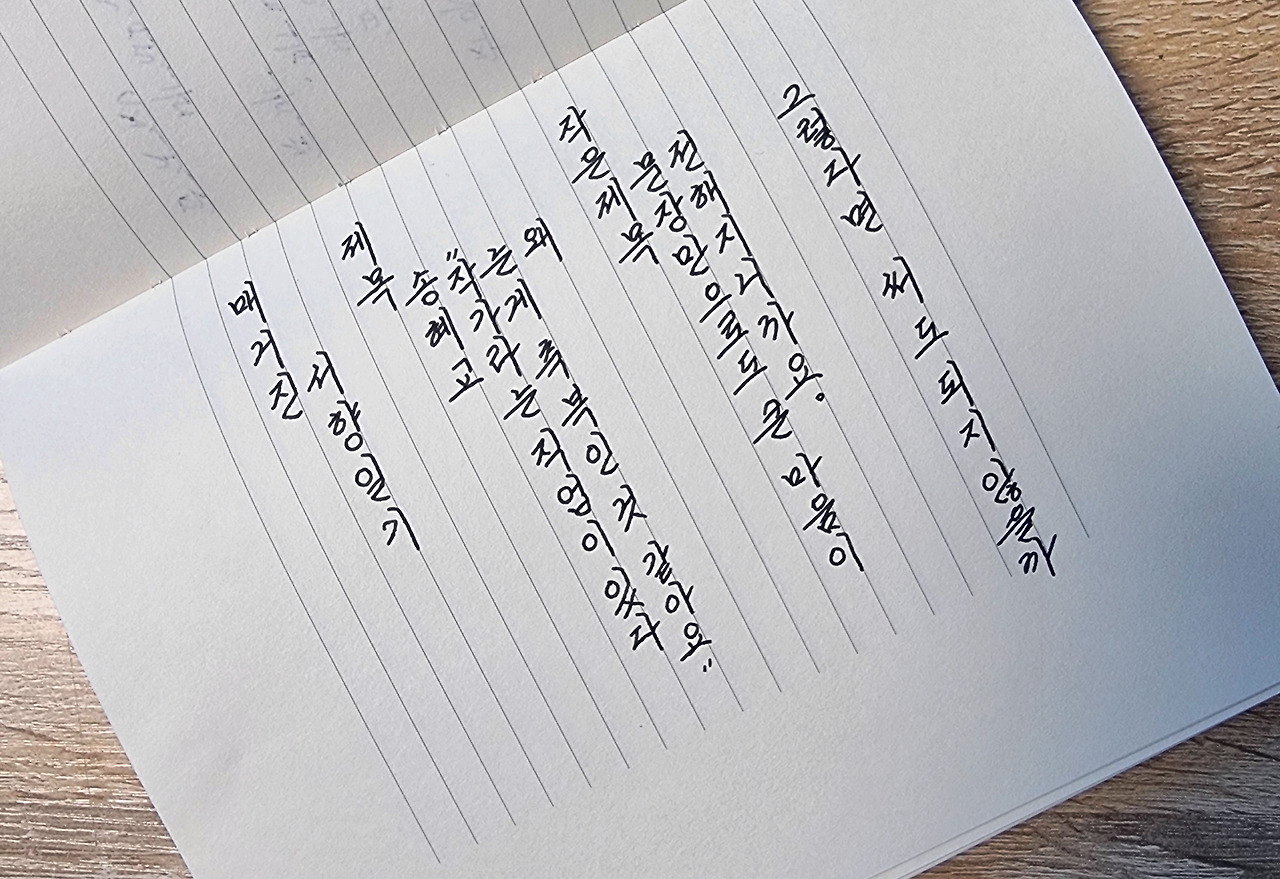 매거진
서향일기
제목
송혜교
“작가라는 직업이 있다
는게 축복인 것 같아요”
왜
작은제목
문장만으로도 큰 마음이
전해지니까요.
그렇다면 써도 되지 않을까